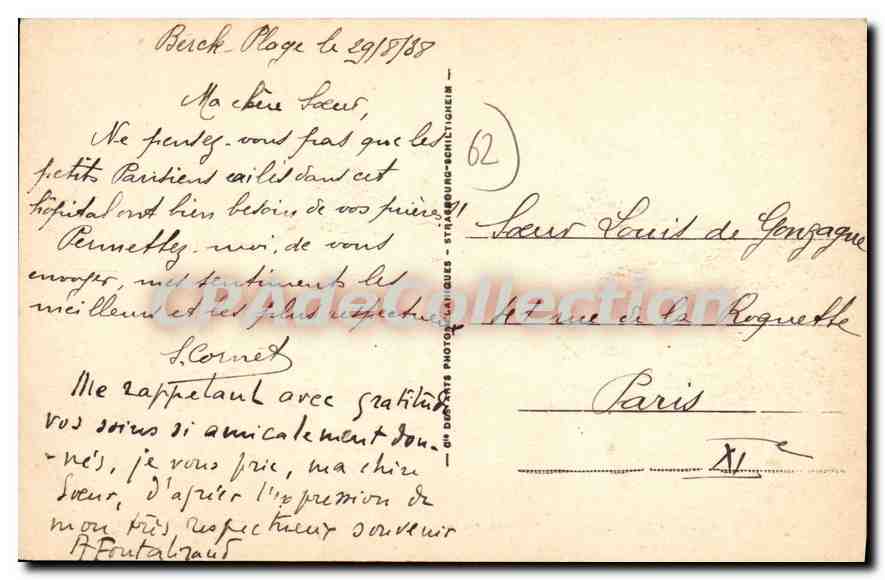 Berck-Plage le 29/8/38
Ma chère Sœur,
Ne pensez-vous pas que les
petits Parisiens exilés dans cet
hôpital ont bien besoin de vos prières!!
Permettez-moi, de vous
envoyer, mes sentiments les
meilleurs et les plus respectueux
S. Cornet
Me rappelant avec gratitude
vos soins si amicalement don-
-nés, je vous prie, ma chère
Sœur, d'agréer l'expression de
mon très respectueux souvenir
Cie DES ARTS PHOTOMÉCANIQUES - STRASBOURG-SCHILTIGHEIM
62
Sœur Louis de Gonzague
rue de la Roquette
Paris
XIe
CPAdeCollection